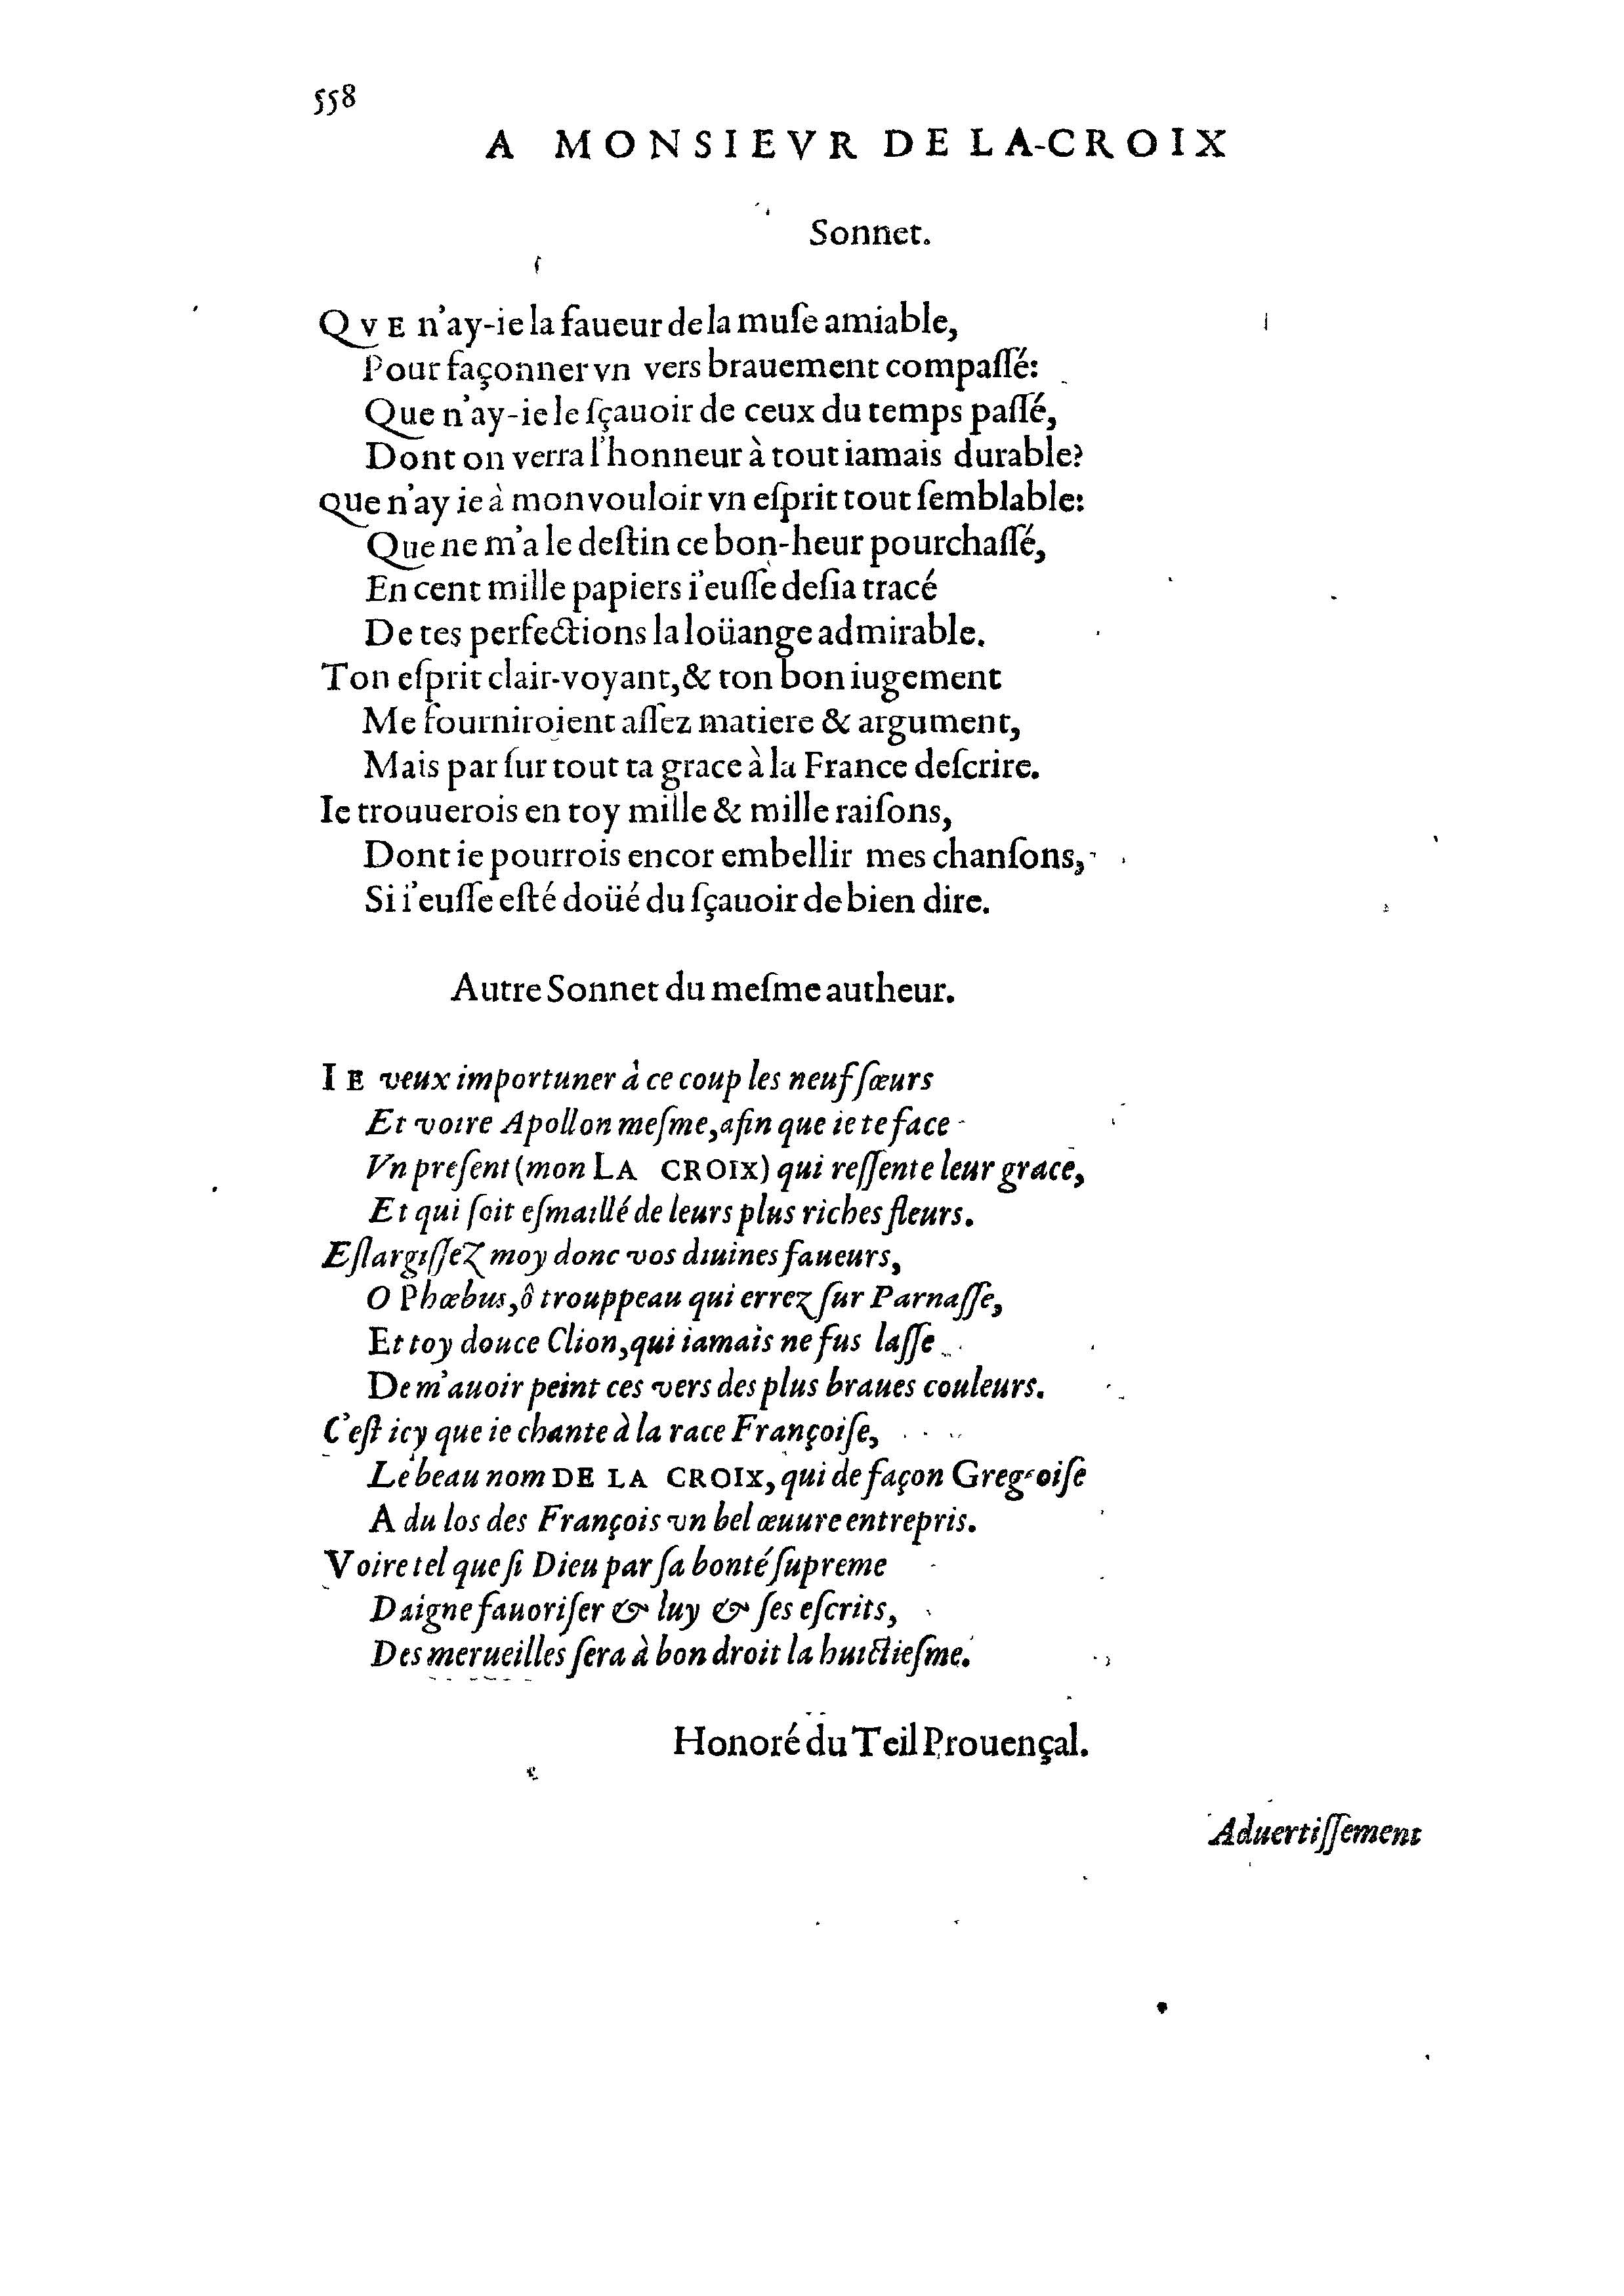 558
A MONSIEVR DE LA-CROIX
Sonnet.
QVE n'ay-ie la faueur de la muſe amiable,
Pour façonner vn vers brauement compaſſé:
Que n'ay-ie le ſçauoir de ceux du temps paſſé,
Dont on verra l'honneur à tout iamais durable?
que n'ay ie à mon vouloir vn eſprit tout ſemblable:
Que ne m'a le deſtin ce bon-heur pourchaſſé,
En cent mille papiers i'euſſe deſia tracé
De tes perfections la loüange admirable.
Ton eſprit clair-voyant, & ton bon iugement
Me fourniroient aſſez matiere & argument,
Mais par ſur tout ta grace à la France deſcrire.
Ie trouuerois en toy mille & mille raiſons,
Dont ie pourrois encor embellir mes chanſons,
Si i'euſſe eſté doüé du ſçauoir de bien dire.
Autre Sonnet du meſme autheur.
IE veux importuner à ce coup les neuf ſœurs
Et voire Apollon meſme, afin que ie te face
Vn preſent (mon LA CROIX) qui reſſente leur grace,
Et qui ſoit eſmaillé de leurs plus riches fleurs.
Eſlargiſſez moy donc vos diuines faueurs,
O Phœbus, ô trouppeau qui errez ſur Parnaſſe,
Et toy douce Clion, qui iamais ne fus laſſe
De m'auoir peint ces vers des plus braues couleurs.
C'eſt icy que ie chante à la race Françoiſe,
Le beau nom DE LA CROIX, qui de façon Gregeoiſe
A du los des François vn bel œuure entrepris.
Voire tel que ſi Dieu par ſa bonté ſupreme
Daigne fauoriſer & luy & ſes eſcrits,
Des merueilles ſera à bon droit la huictieſme.
Honoré du Teil Prouençal.
Aduertiſſement